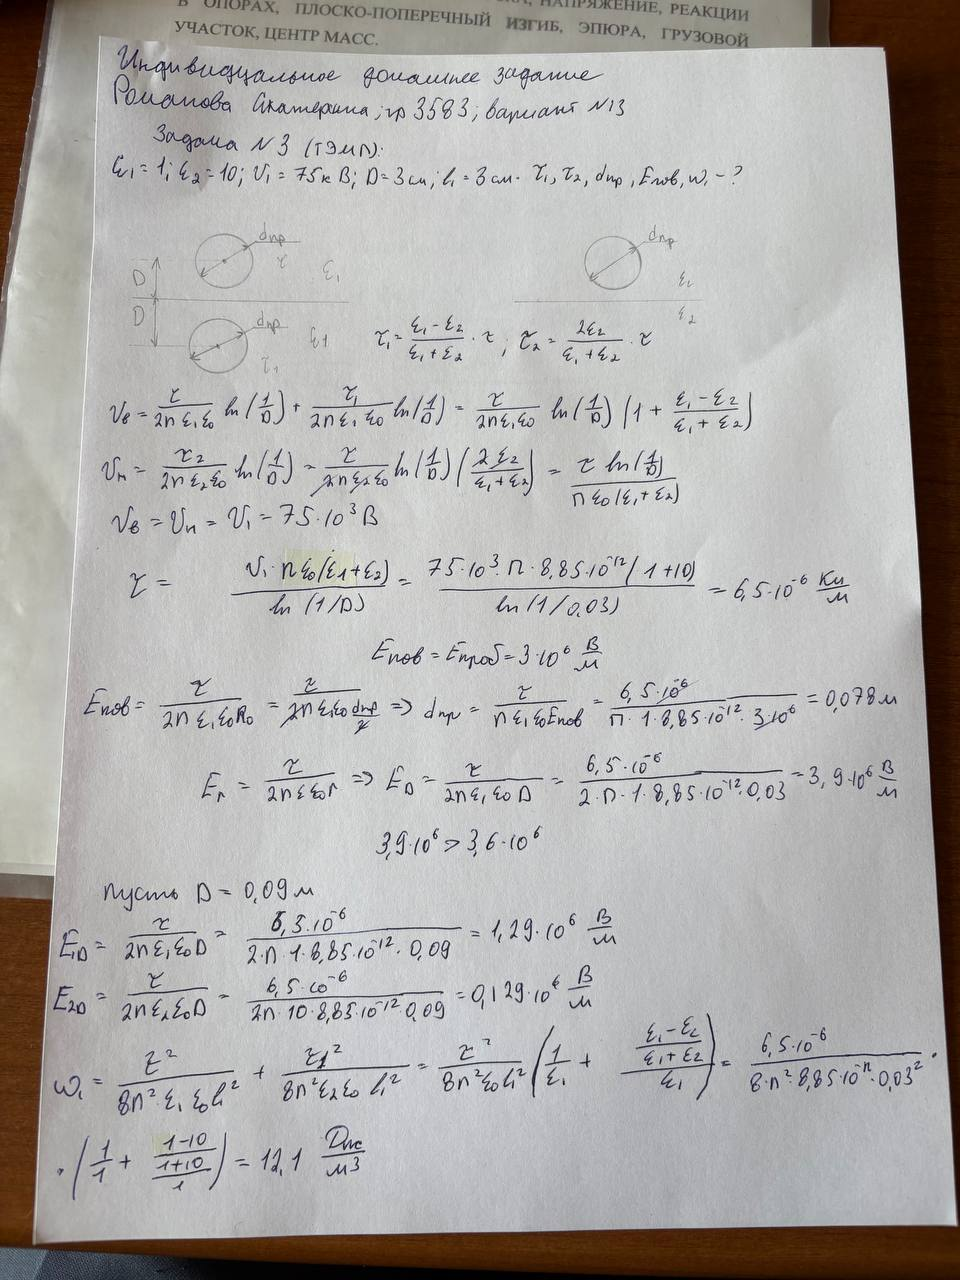 В ОПОРАХ, ПЛОСКО-ПОПЕРЕЧНЫЙ ИЗГИБ, ЭПЮРА, ГРУЗОВОЙ
НАПРЯЖЕНИЕ, РЕАКЦИИ
УЧАСТОК, ЦЕНТР МАСС.
Индивидуальное домашнее задание
Романова Екатерина, гр 3583, вариант N13
Задача N3 (ТЭМП):
ε1 = 1; ε2 = 10; V1 = 75 кВ; D = 3 см; l1 = 3 см. τ1, τ2, dпр, Eпов, w1 - ?
dпр
D
τ
ε1
D
dпр
ε1
τ1
dпр
ε1
ε2
τ1 = (ε1 - ε2)/(ε1 + ε2) · τ ; τ2 = 2ε2/(ε1 + ε2) · τ
Vв = τ/(2π ε1 ε0) ln(1/D) + τ1/(2π ε1 ε0) ln(1/D) = τ/(2π ε1 ε0) ln(1/D) (1 + (ε1 - ε2)/(ε1 + ε2))
Vн = τ2/(2π ε2 ε0) ln(1/D) = τ/(2π ε2 ε0) ln(1/D) (2ε2/(ε1 + ε2)) = τ ln(1/D)/(π ε0 (ε1 + ε2))
Vв = Vн = V1 = 75·10³ В
τ = V1 · π ε0 (ε1 + ε2)/ln(1/D) = 75·10³ · π · 8,85·10⁻¹² (1 + 10)/ln(1/0,03) = 6,5·10⁻⁶ Кл/м
Eпов = Eпроб = 3·10⁶ В/м
Eпов = τ/(2π ε1 ε0 R0) = τ/(2π ε1 ε0 dпр/2) => dпр = τ/(π ε1 ε0 Eпов) = 6,5·10⁻⁶/(π · 1 · 8,85·10⁻¹² · 3·10⁶) = 0,078 м
Er = τ/(2π ε ε0 r) => ED = τ/(2π ε1 ε0 D) = 6,5·10⁻⁶/(2 · π · 1 · 8,85·10⁻¹² · 0,03) = 3,9·10⁶ В/м
3,9·10⁶ > 3,6·10⁶
пусть D = 0,09 м
E1D = τ/(2π ε1 ε0 D) = 6,5·10⁻⁶/(2 · π · 1 · 8,85·10⁻¹² · 0,09) = 1,29·10⁶ В/м
E2D = τ/(2π ε2 ε0 D) = 6,5·10⁻⁶/(2π · 10 · 8,85·10⁻¹² · 0,09) = 0,129·10⁶ В/м
w1 = τ²/(8π² ε1 ε0 l1²) + τ1²/(8π² ε2 ε0 l1²) = τ²/(8π² ε0 l1²) (1/ε1 + ((ε1 - ε2)/(ε1 + ε2))/ε1) = 6,5·10⁻⁶/(8 · π² · 8,85·10⁻¹² · 0,03²) ·
· (1/1 + ((1 - 10)/(1 + 10))/1) = 12,1 Дж/м³